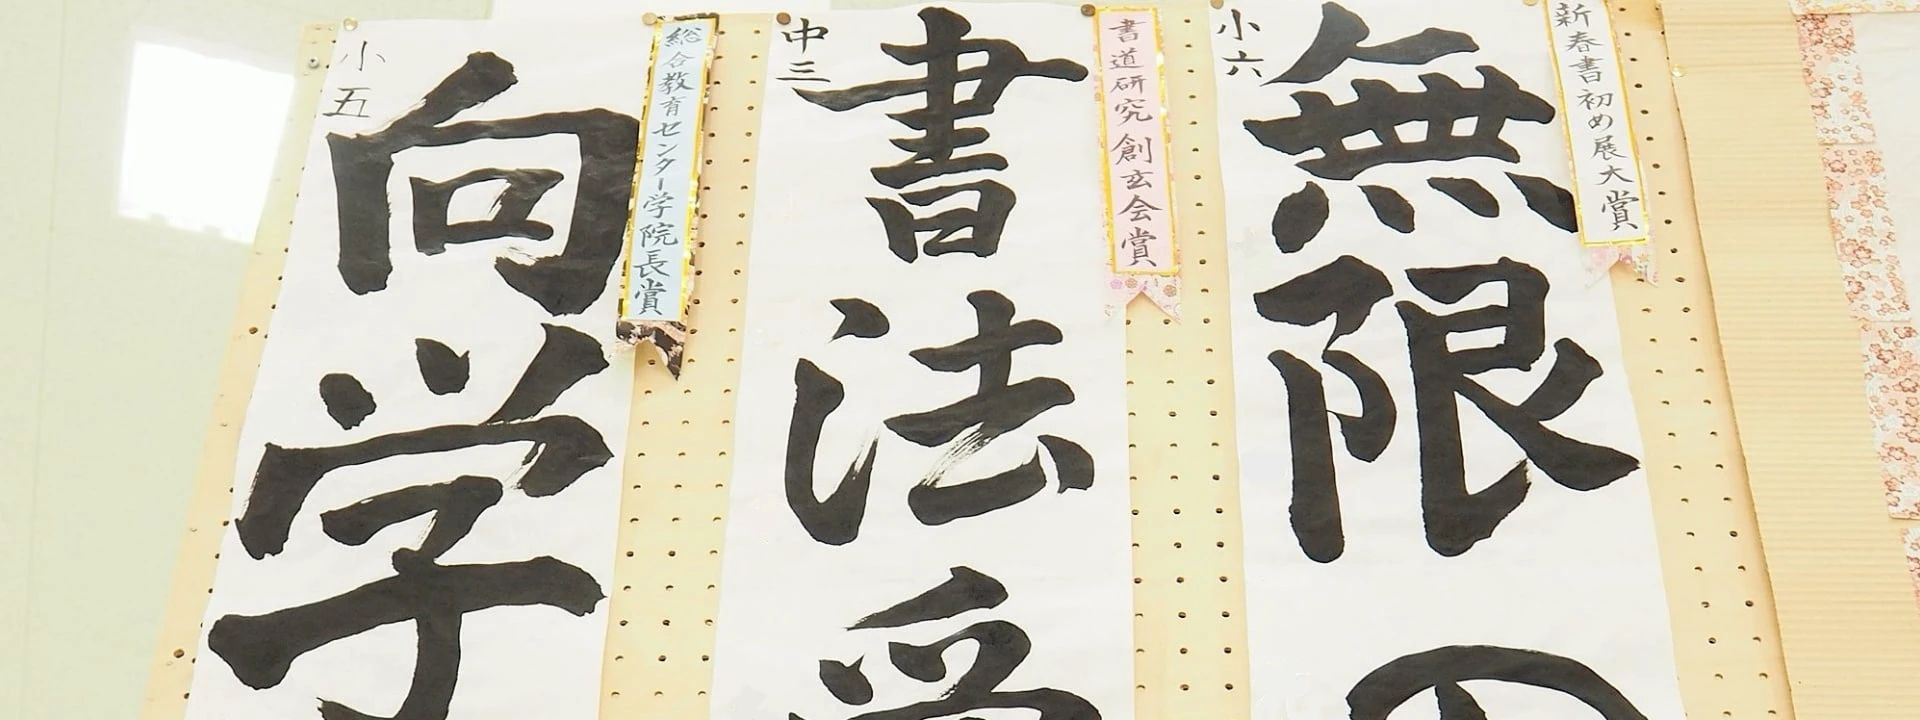 小五
向学
総合教育センター学院長賞
中三
書法
書道研究創玄会賞
小六
無限の
新春書初め展大賞